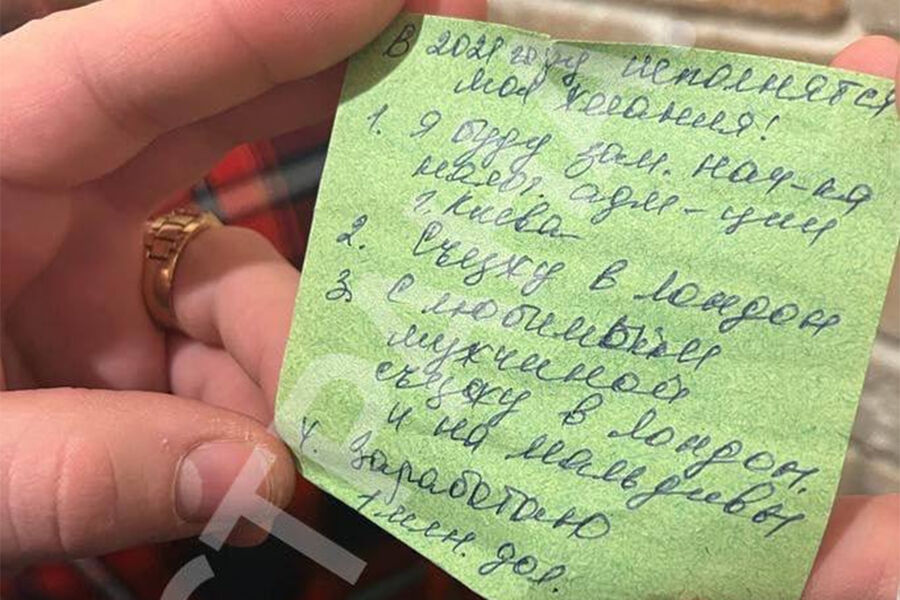 В 2021 году исполнятся
мои желания!
1. Я буду зам. нач-ка
налог. адм-ции
г. Киева
2. Съезжу в Лондон
3. С любимым
мужчиной
съезжу в Лондон.
и на мальдивы
4. Заработаю
1 млн. дол.